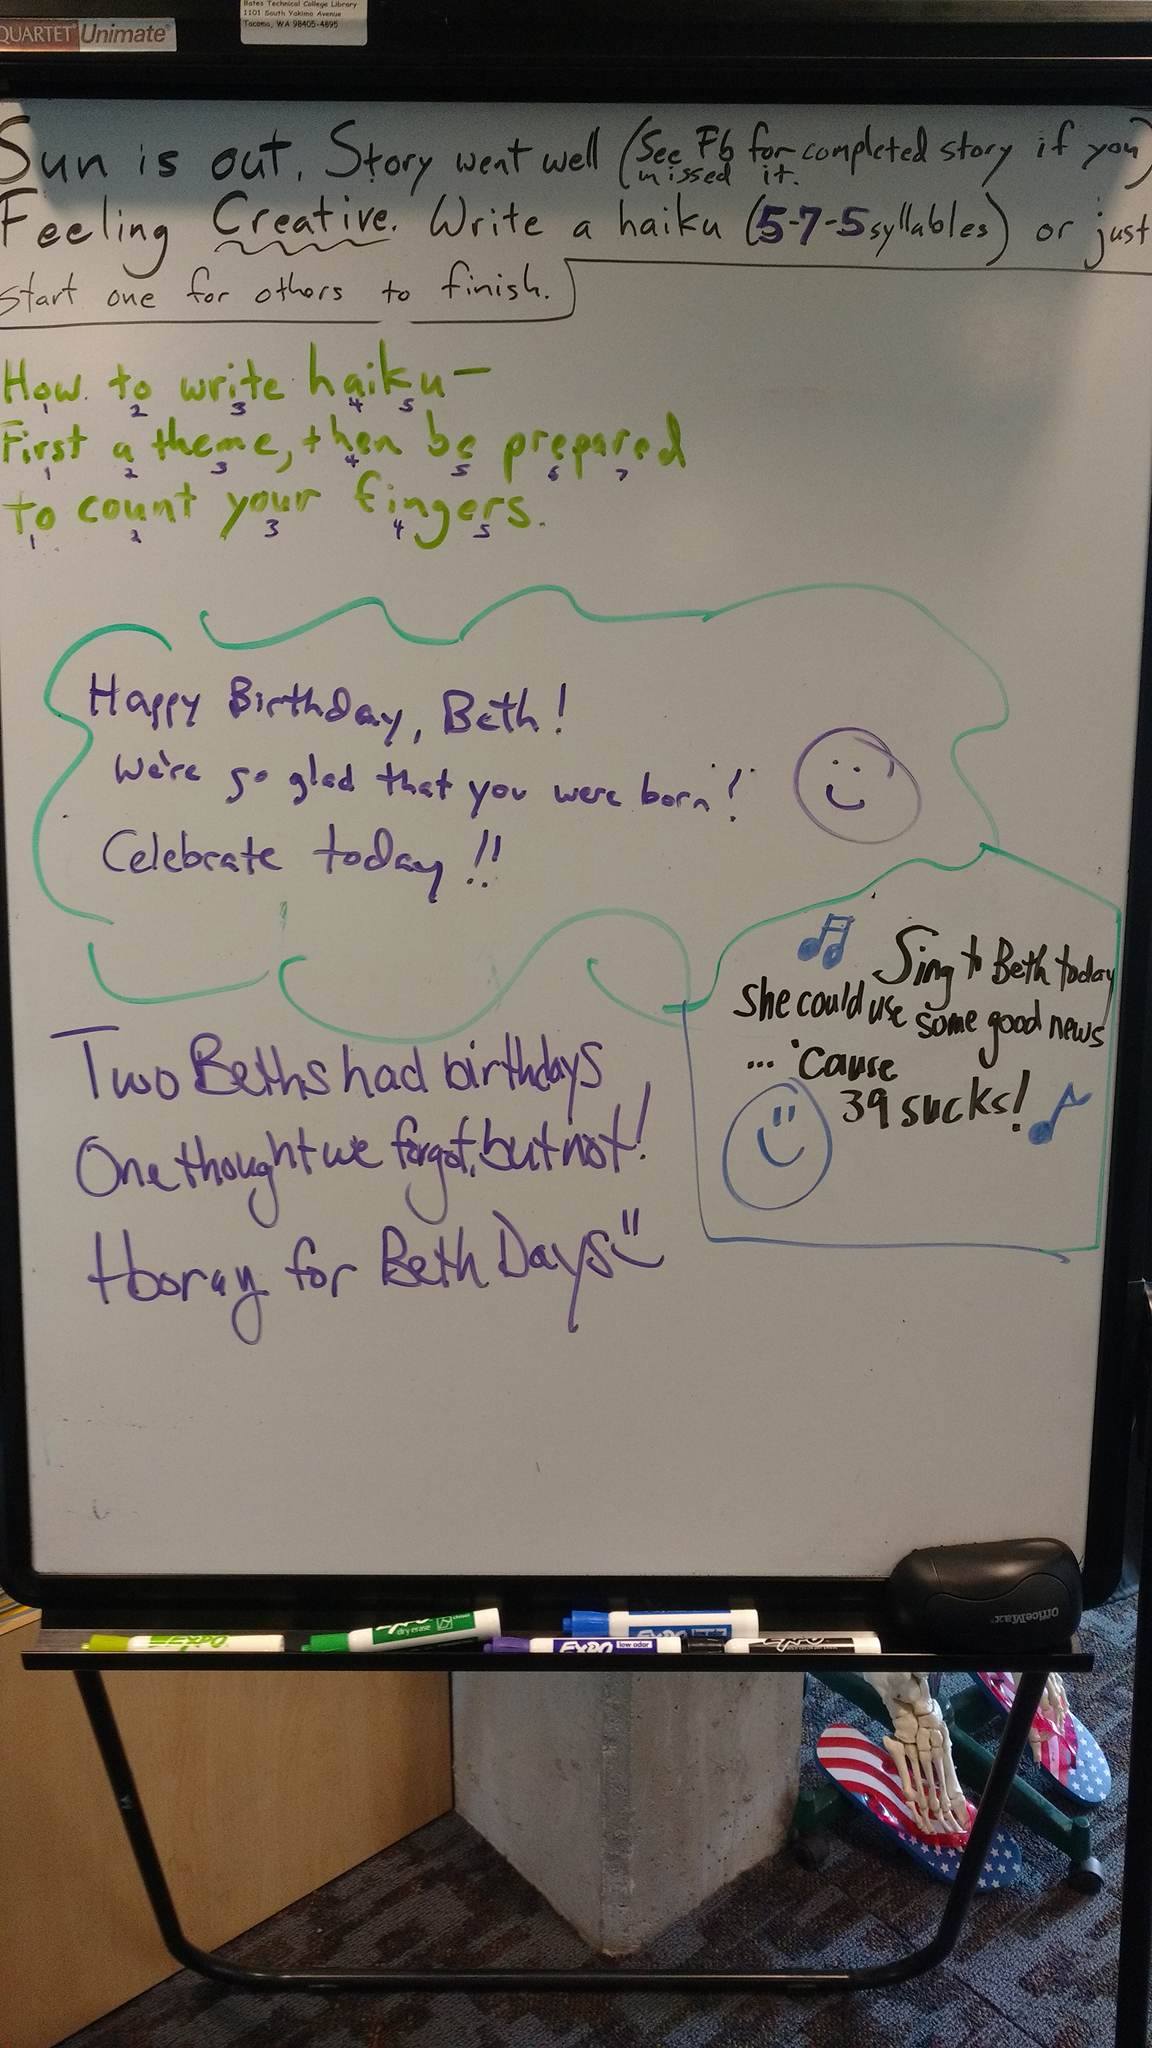 QUARTET Unimate
Bates Technical College Library
1101 South Yakima Avenue
Tacoma, WA 98405-4895
Sun is out. Story went well (See Fb for completed story if you missed it.)
Feeling Creative. Write a haiku (5-7-5 syllables) or just
start one for others to finish.
How to write haiku—
1 2 3 4 5
First a theme, then be prepared
1 2 3 4 5 6 7
to count your fingers.
1 2 3 4 5
Happy Birthday, Beth!
We're so glad that you were born!
Celebrate today!!
Sing to Beth today
She could use some good news
... 'Cause
39 sucks!
Two Beths had birthdays
One thought we forgot, but not!
Hooray for Beth Days
EXPO
EXPO
dry erase
EXPO
EXPO
low odor
EXPO
OfficeMax